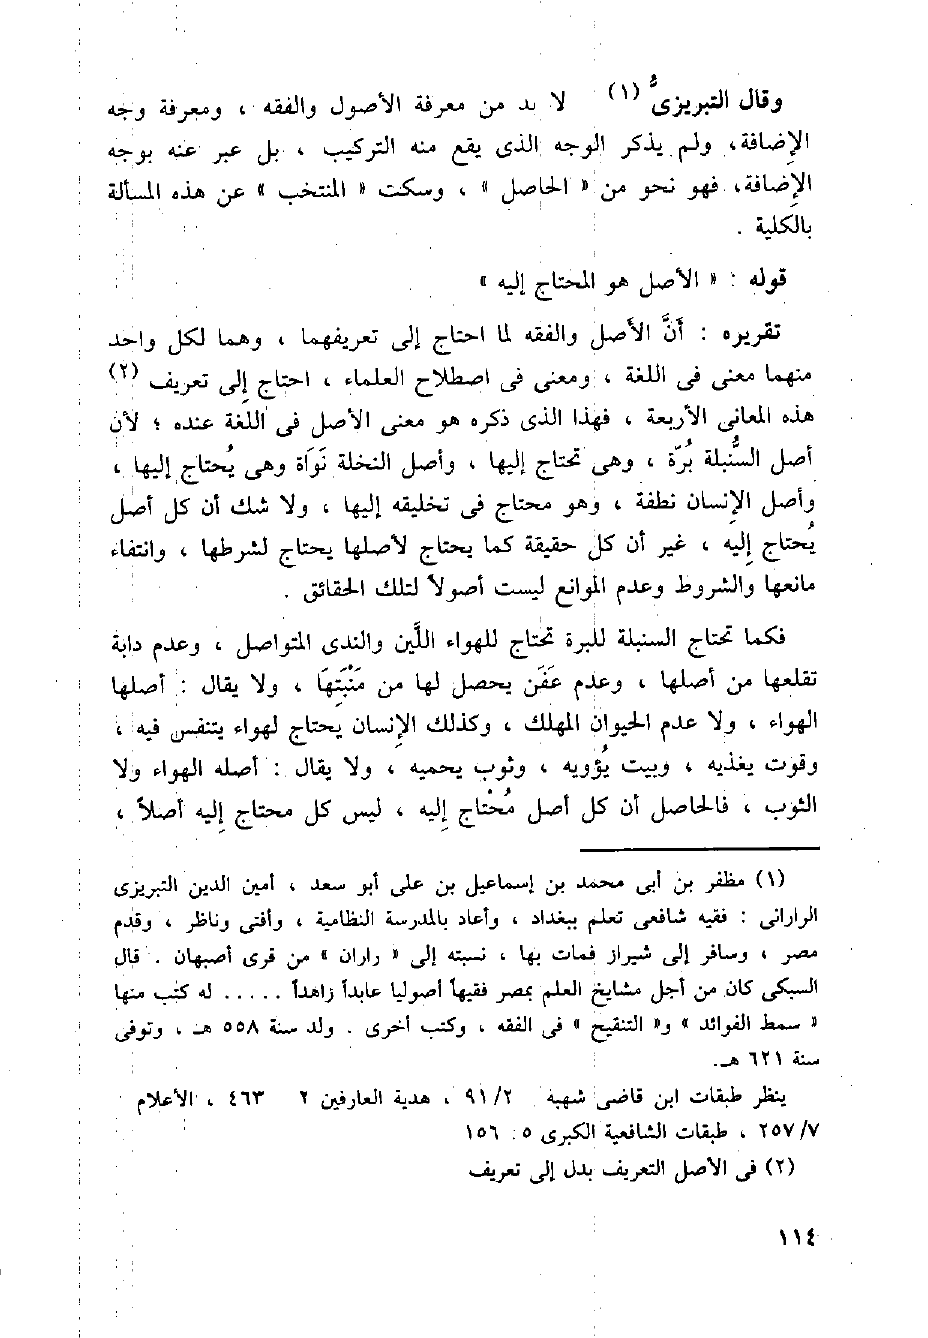 وقال التبريزىُّ (١) لا بد من معرفة الأصول والفقه ، ومعرفة وجه
الإِضافة، ولم يذكر الوجه الذى يقع منه التركيب ، بل عبر عنه بوجه
الإِضافة، فهو نحو من « الحاصل » ، وسكت « المنتخب » عن هذه المسألة
بالكلية .
قوله : « الأصل هو المحتاج إليه »
تقريره : أنَّ الأصل والفقه لما احتاج إلى تعريفهما ، وهما لكل واحد
منهما معنى فى اللغة ، ومعنى فى اصطلاح العلماء ، احتاج إلى تعريف (٢)
هذه المعانى الأربعة ، فهذا الذى ذكره هو معنى الأصل فى اللغة عنده ؛ لأن
أصل السُّنبلة بُرّة ، وهى تحتاج إليها ، وأصل النخلة نَوَاة وهى يُحتاج إليها ،
وأصل الإِنسان نطفة ، وهو محتاج فى تخليقه إليها ، ولا شك أن كل أصل
يُحتاج إِليه ، غير أن كل حقيقة كما يحتاج لأصلها يحتاج لشرطها ، وانتفاء
مانعها والشروط وعدم الموانع ليست أصولاً لتلك الحقائق .
فكما تحتاج السنبلة للبرة تحتاج للهواء اللَّين والندى المتواصل ، وعدم دابة
تقلعها من أصلها ، وعدم عَفَن يحصل لها من مَنْبَتِهَا ، ولا يقال : أصلها
الهواء ، ولا عدم الحيوان المهلك ، وكذلك الإِنسان يحتاج لهواء يتنفس فيه ،
وقوت يغذيه ، وبيت يُؤويه ، وثوب يحميه ، ولا يقال : أصله الهواء ولا
الثوب ، فالحاصل أن كل أصل مُحْتاج إليه ، ليس كل محتاج إليه أصلاً ،
(١) مظفر بن أبى محمد بن إسماعيل بن على أبو سعد ، أمين الدين التبريزى
الرارانى : فقيه شافعى تعلم ببغداد ، وأعاد بالمدرسة النظامية ، وأفتى وناظر ، وقدم
مصر ، وسافر إلى شيراز فمات بها ، نسبته إلى « راران » من قرى أصبهان . قال
السبكى كان من أجل مشايخ العلم بمصر فقيهاً أصوليا عابداً زاهداً ..... له كتب منها
« سمط الفوائد » و« التنقيح » فى الفقه ، وكتب أخرى . ولد سنة ٥٥٨ هـ ، وتوفى
سنة ٦٢١ هـ.
ينظر طبقات ابن قاضى شهبة ٩١/٢ ، هدية العارفين ٢ ٤٦٣ ، الأعلام
٢٥٧/٧ ، طبقات الشافعية الكبرى ٥: ١٥٦
(٢) فى الأصل التعريف بدل إلى تعريف
١١٤